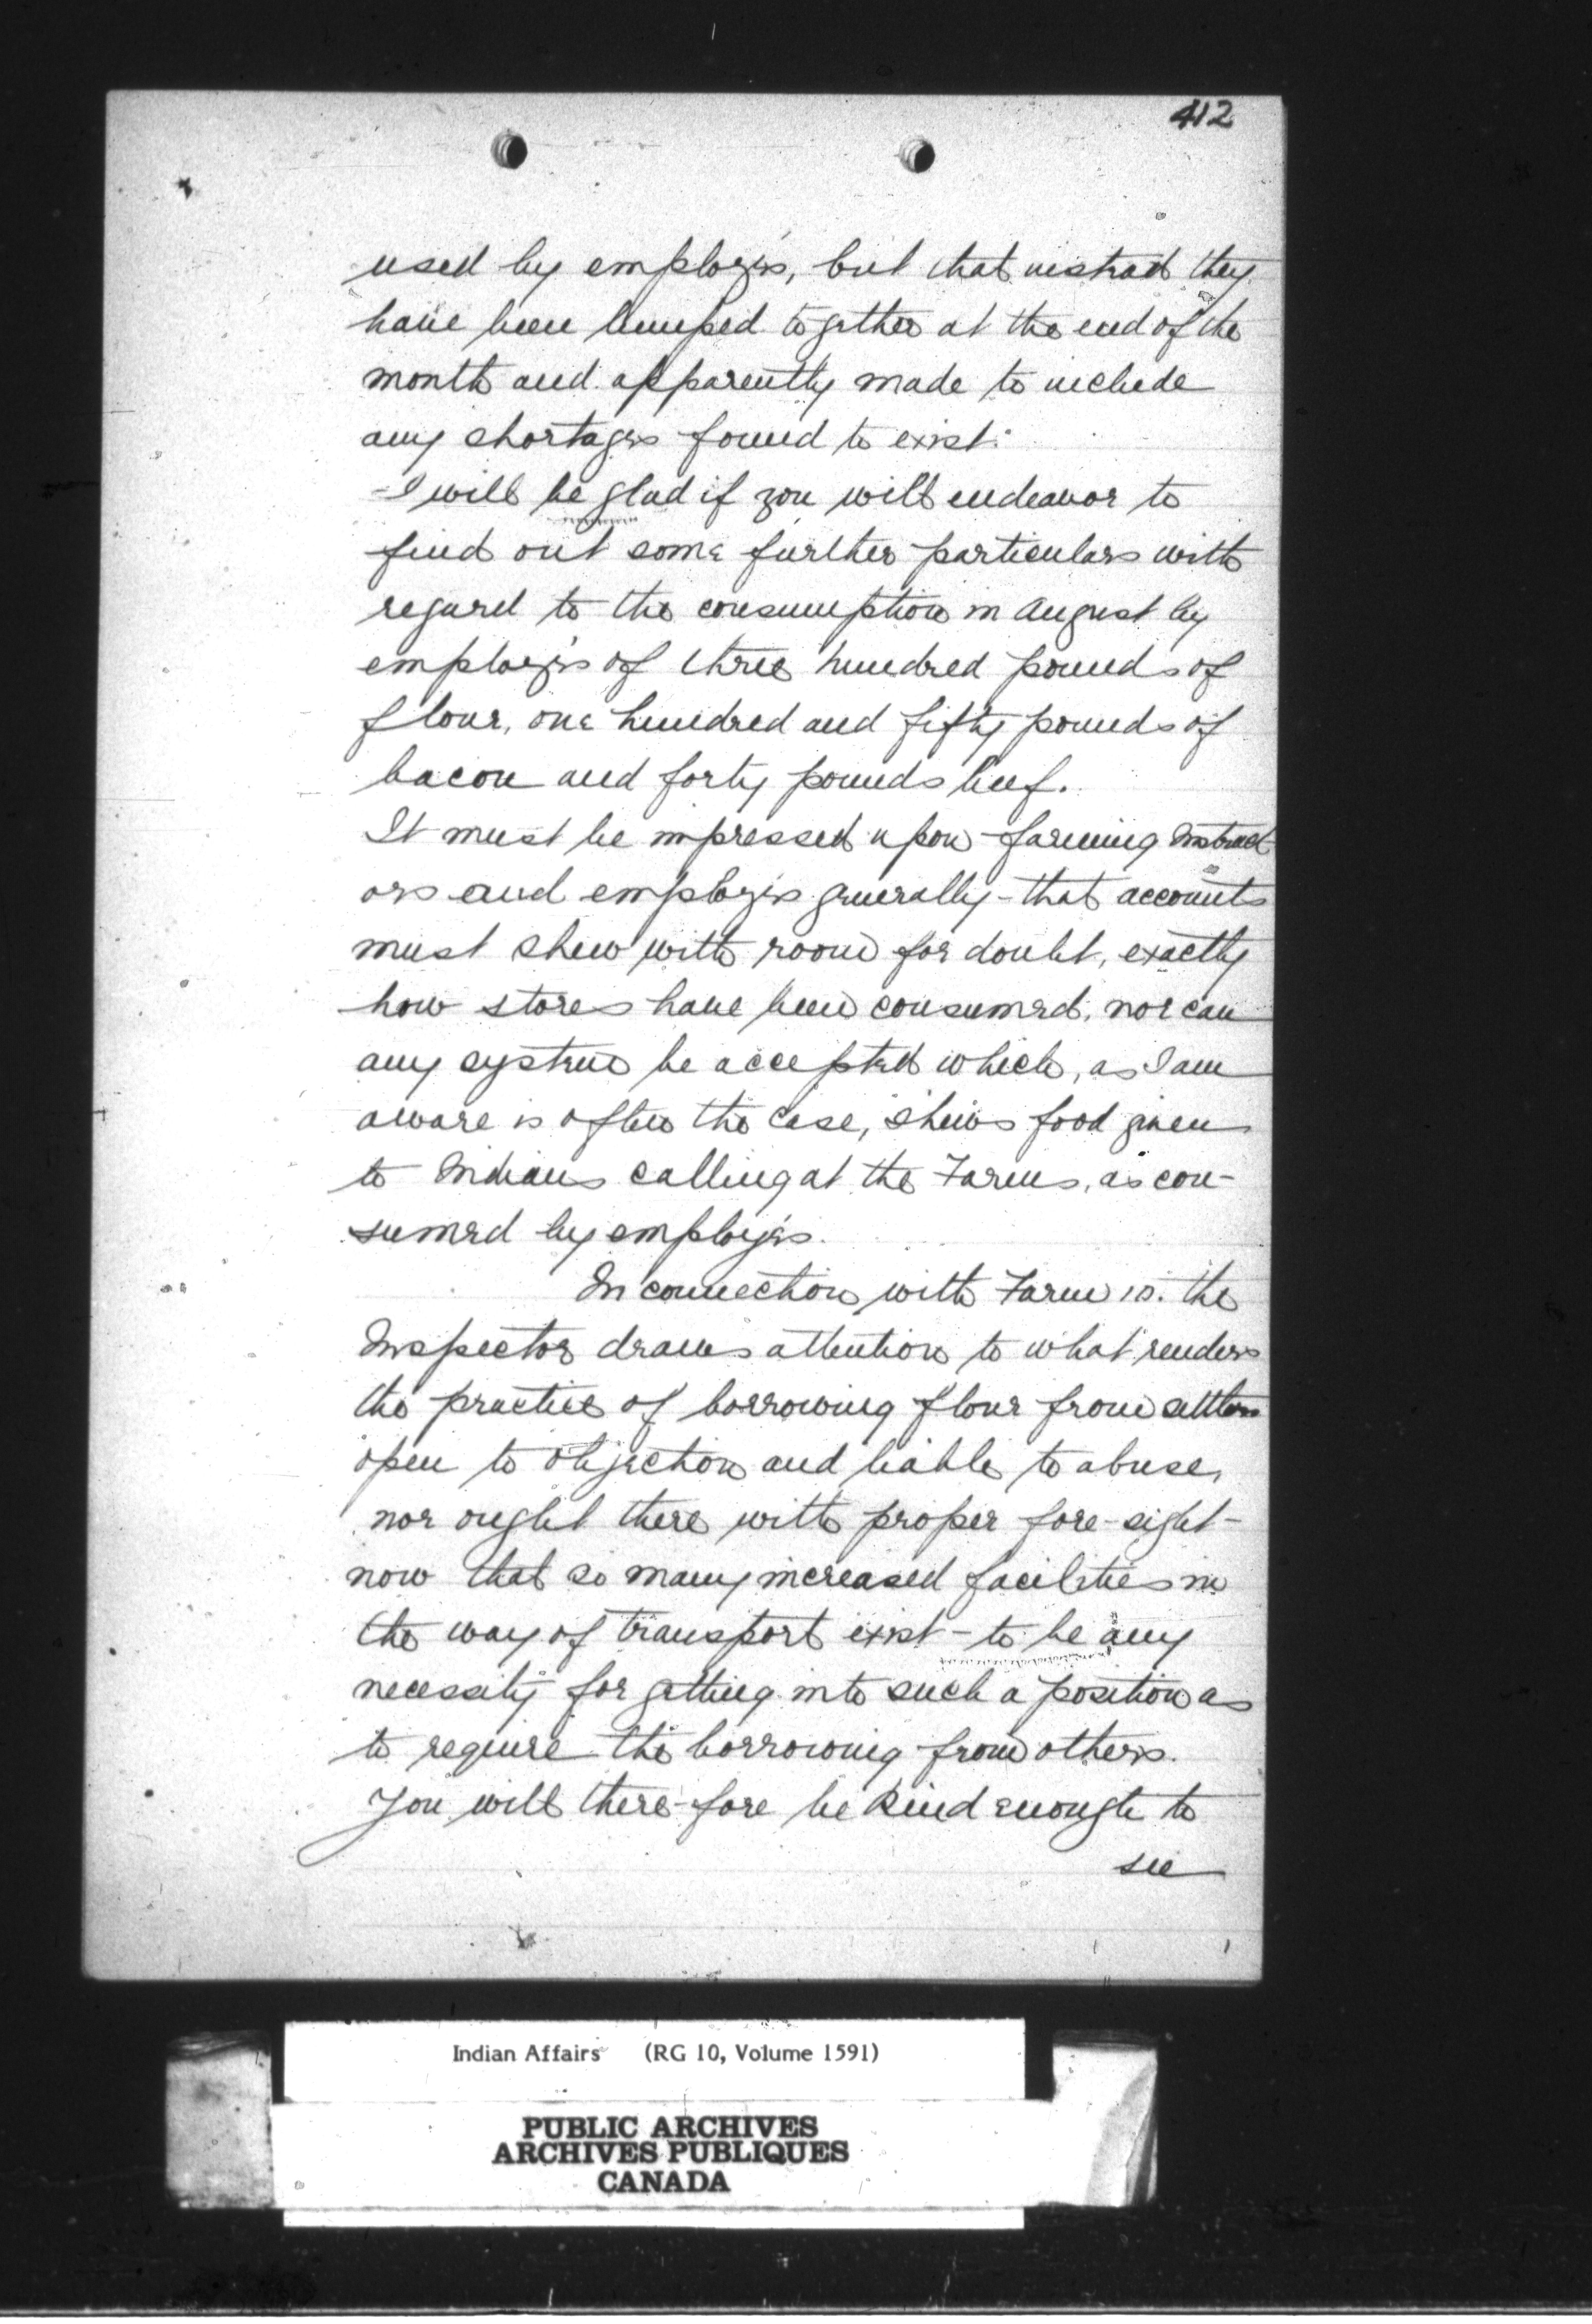 412
used by employés, but that instead they
have been lumped together at the end of the
month and apparently made to include
any shortages found to exist.
I will be glad if you will endeavor to
find out some further particulars with
regard to the consumption in August by
employés of three hundred pounds of
flour, one hundred and fifty pounds of
bacon and forty pounds beef.
It must be impressed upon farming Instruct
ors and employés generally - that accounts
must shew with room for doubt, exactly
how stores have been consumed, nor can
any system be accepted which, as I am
aware is often the case, shews food given
to Indians calling at the Farms, as con-
sumed by employés.
In connection with Farm 10. the
Inspector draws attention to what renders
the practice of borrowing flour from settlers
open to objection and liable to abuse,
nor ought there with proper fore-sight -
now that so many increased facilities in
the way of transport exist - to be any
necessity for getting into such a position as
to require the borrowing from others.
You will there-fore be kind enough to
see
Indian Affairs (RG 10, Volume 1591)
PUBLIC ARCHIVES
ARCHIVES PUBLIQUES
CANADA